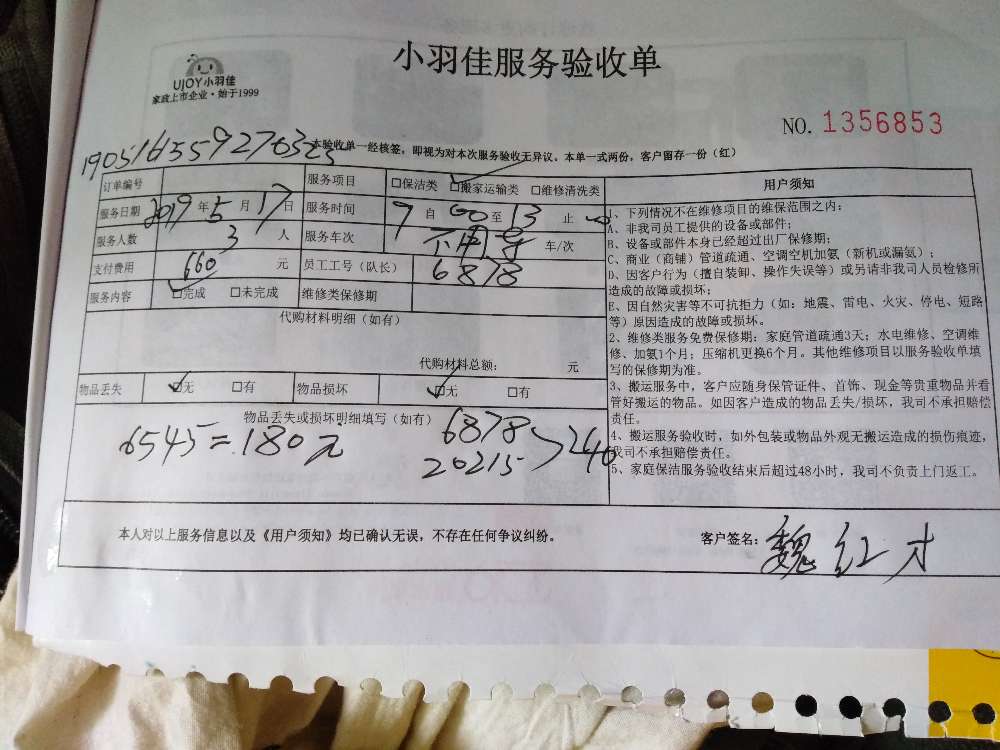 小羽佳服务验收单
UJOY小羽佳
家政上市企业·始于1999
NO. 1356853
本验收单一经核签，即视为对本次服务验收无异议。本单一式两份，客户留存一份（红）
订单编号
服务项目 □保洁类 □搬家运输类 □维修清洗类
服务日期 2019年5月17日 服务时间 9自00至13止00
服务人数 3人 服务车次 不用车 车/次
支付费用 660元 员工工号（队长） 6878
服务内容 □完成 □未完成 维修类保修期
代购材料明细（如有）
代购材料总额： 元
物品丢失 □无 □有 物品损坏 □无 □有
物品丢失或损坏明细填写（如有）
6545=180元
6878
20215 >240
用户须知
1、下列情况不在维修项目的维保范围之内：
A、非我司员工提供的设备或部件；
B、设备或部件本身已经超过出厂保修期；
C、商业（商铺）管道疏通、空调空机加氨（新机或漏氨）；
D、因客户行为（擅自装卸、操作失误等）或另请非我司人员检修所
造成的故障或损坏；
E、因自然灾害等不可抗拒力（如：地震、雷电、火灾、停电、短路
等）原因造成的故障或损坏。
2、维修类服务免费保修期：家庭管道疏通3天；水电维修、空调维
修、加氨1个月；压缩机更换6个月。其他维修项目以服务验收单填
写的保修期为准。
3、搬运服务中，客户应随身保管证件、首饰、现金等贵重物品并看
管好搬运的物品。如因客户造成的物品丢失/损坏，我司不承担赔偿
责任。
4、搬运服务验收时，如外包装或物品外观无搬运造成的损伤痕迹，
我司不承担赔偿责任。
5、家庭保洁服务验收结束后超过48小时，我司不负责上门返工。
本人对以上服务信息以及《用户须知》均已确认无误，不存在任何争议纠纷。
客户签名：魏红才